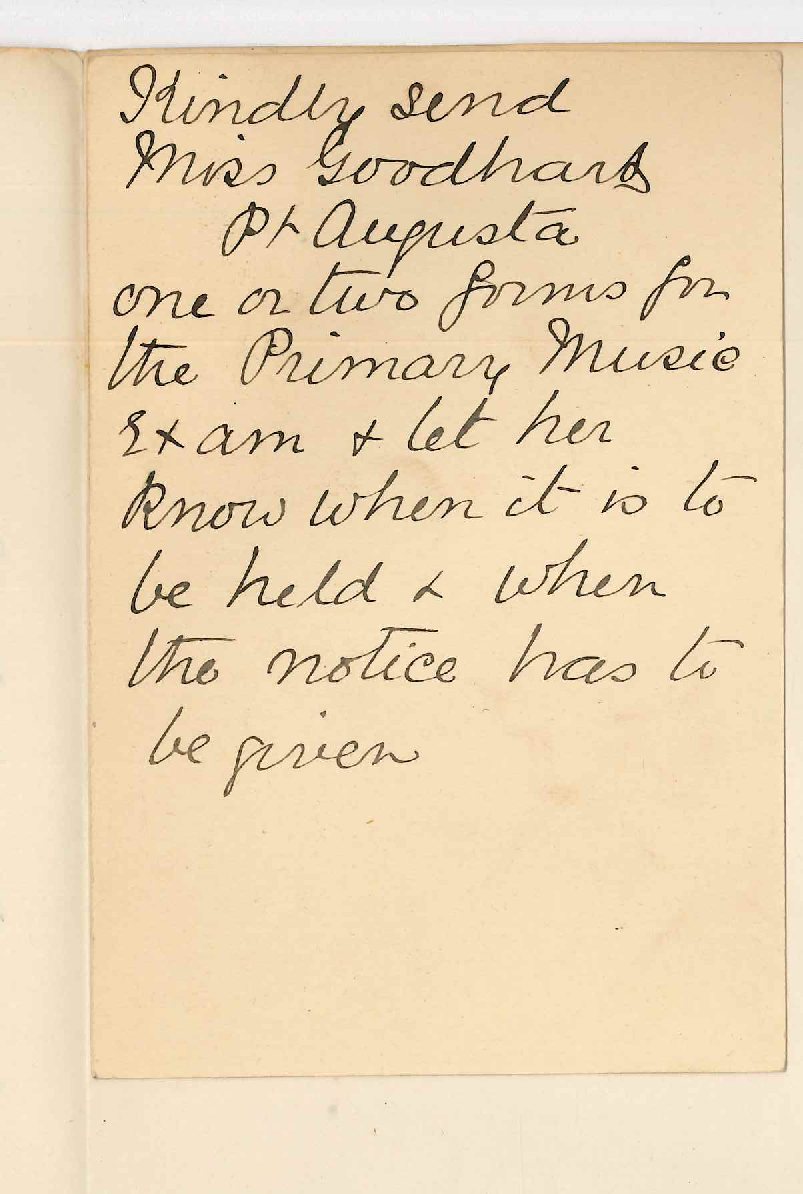 Kindly send
Miss Goodhart
Pt Augusta
one or two forms for
the Primary Music
Exam & let her
know when it is to
be held & when
the notice has to
be given